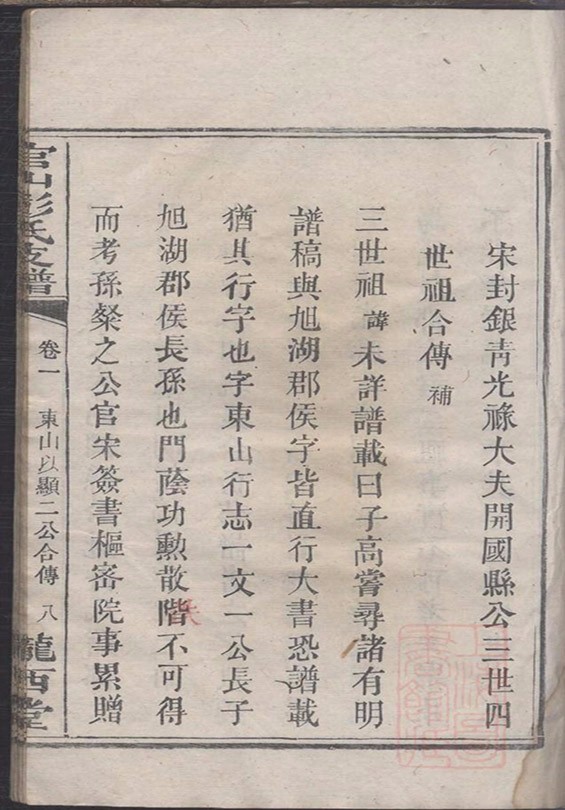 宋封銀青光祿大夫開國縣公三世四
世祖合傳補
三世祖諱未詳譜載曰子高嘗尋諸有明
譜稿與旭湖郡侯字皆直行大書恐譜載
猶其行字也字東山行志一文一公長子
旭湖郡侯長孫也門蔭功勲散階不可得
而考孫粲之公官宋簽書樞密院事累贈
官山彭氏支譜
卷一
東山以顯二公合傳
八
隴西堂